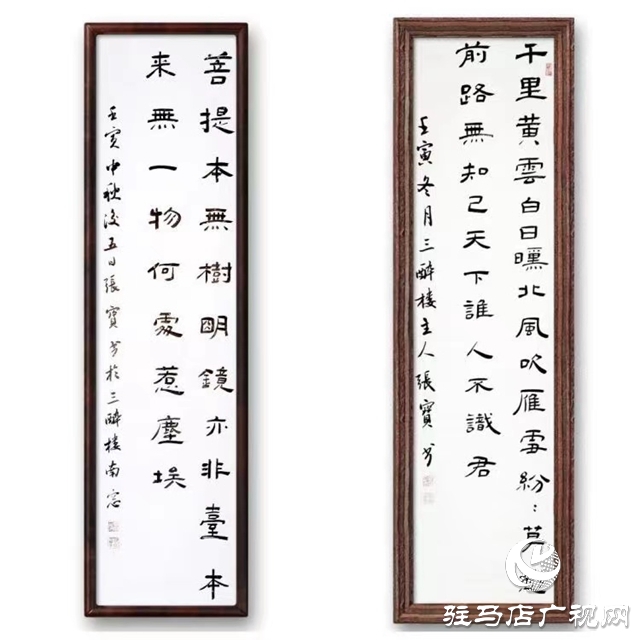 菩提本無樹明鏡亦非臺本
来無一物何處惹塵埃
壬寅中秋後五日張寶书於三醉樓南窓
千里黄雲白日曛北風吹雁雪紛:莫
前路無知己天下誰人不識君
壬寅冬月三醉樓主人張寶书
驻马店广视网